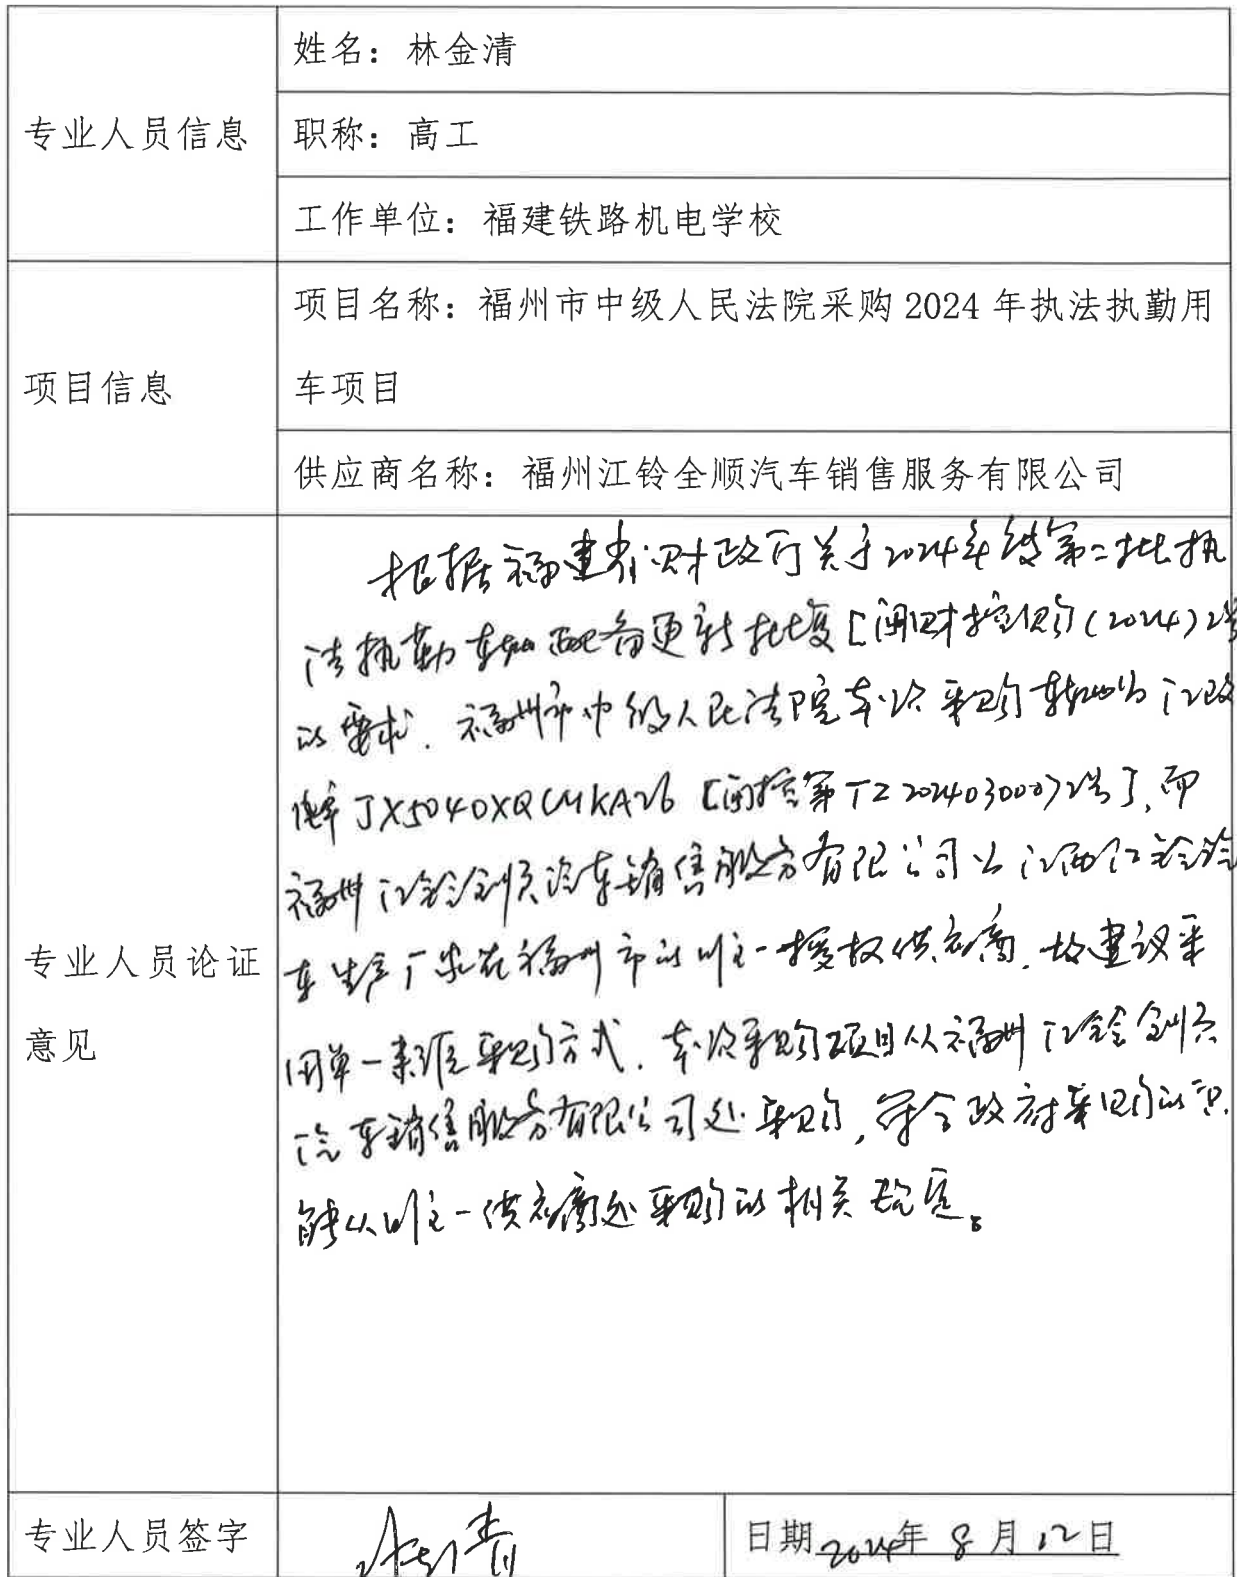 专业人员信息
姓名：林金清
职称：高工
工作单位：福建铁路机电学校
项目信息
项目名称：福州市中级人民法院采购 2024 年执法执勤用
车项目
供应商名称：福州江铃全顺汽车销售服务有限公司
专业人员论证
意见
根据福建省财政厅关于2024年度第二批执
法执勤车辆配备更新批复[闽财控购(2024)2号
的要求．福州市中级人民法院本次采购车辆为江
牌JX5040XQCMKA26 [闽控第TZ20240300072号],而
福州江铃全顺汽车销售服务有限公司为江西江铃汽
车生产厂家在福州市的唯一授权供应商．故建议采
用单一来源采购方式．本次采购项目从福州江铃全顺
汽车销售服务有限公司处采购，符合政府采购的只
能从唯一供应商处采购的相关规定。
专业人员签字
日期 2024年 8 月 12日